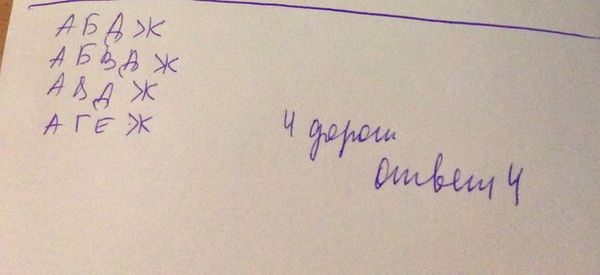 А Б Д Ж
А Б В Д Ж
А В Д Ж
А Г Е Ж
4 дорог
ответ 4